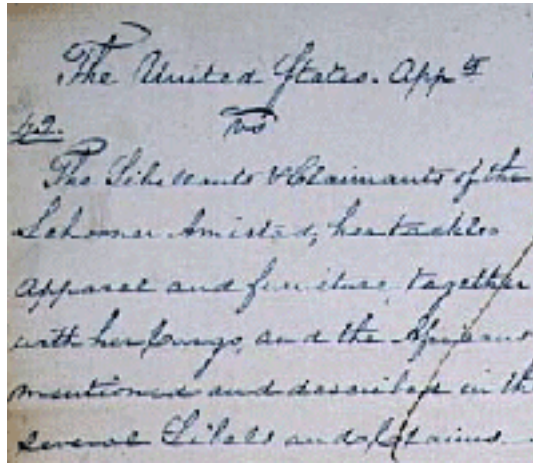 The United States. Appts
42. vs
The Libellants & Claimants of the
Schooner Amistad, her tackle
apparel and furniture, together
with her Cargo, and the Africans
mentioned and described in the
several Libels and Claims.